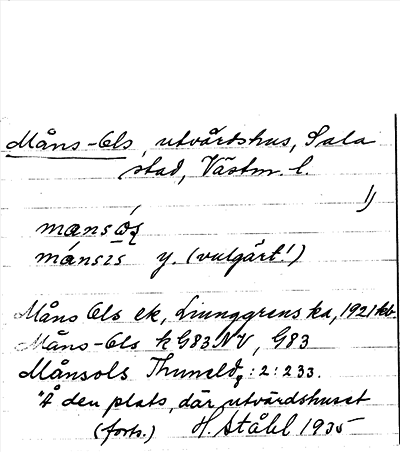 Måns-Ols, utvärdshus, Sala
stad, Västm. l.
1)
mansǿʒ
mánsis y. (vulgärt!)
Måns Ols ek, Ljunggrens ka, 1921 kb.
Måns-Ols k G83NV, G83
Månsols Thuneld, :2:233.
"Å den plats, där utvärdshuset
(forts.) H. Ståhl 1935